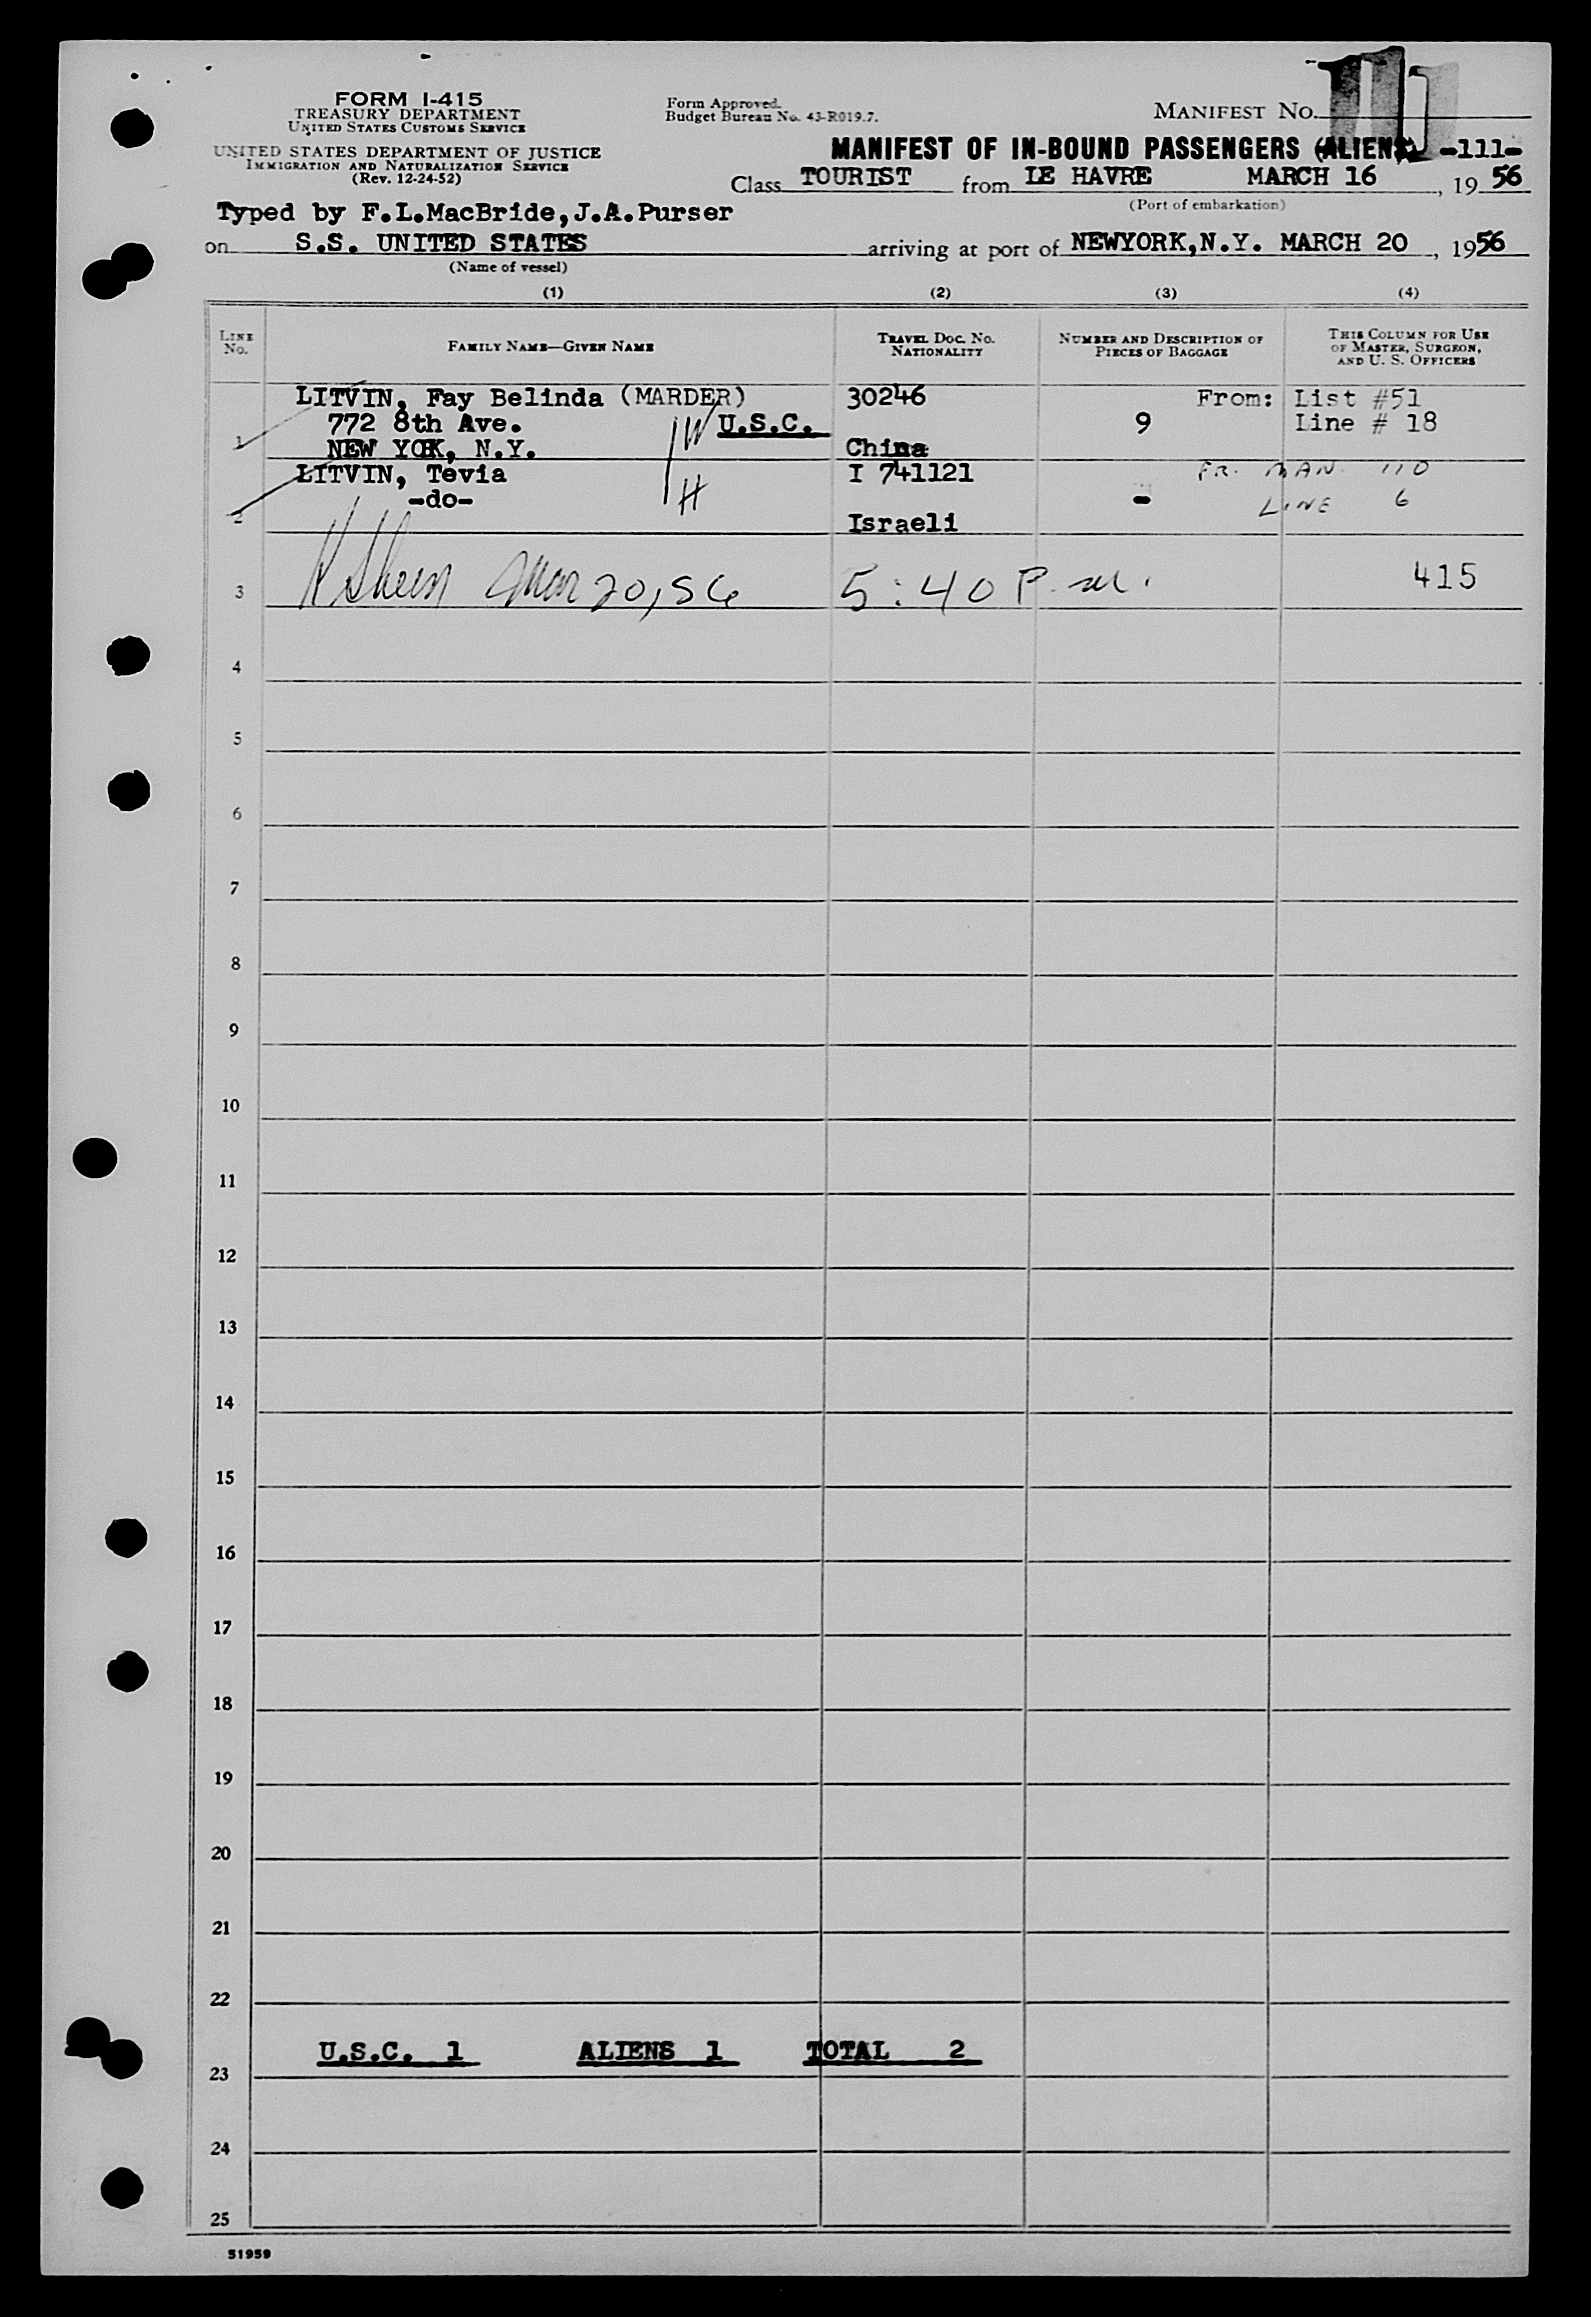 FORM I-415
TREASURY DEPARTMENT
UNITED STATES CUSTOMS SERVICE
UNITED STATES DEPARTMENT OF JUSTICE
IMMIGRATION AND NATURALIZATION SERVICE
(Rev. 12-24-52)
Form Approved.
Budget Bureau No. 43-R019.7.
MANIFEST NO.
MANIFEST OF IN-BOUND PASSENGERS (ALIENS) -111-
Class TOURIST from LE HAVRE MARCH 16, 1956
(Port of embarkation)
Typed by F.L.MacBride,J.A.Purser
on S.S. UNITED STATES arriving at port of NEWYORK,N.Y. MARCH 20, 1956
(Name of vessel)
(1) (2) (3) (4)
LINE No. FAMILY NAME—GIVEN NAME TRAVEL DOC. NO. NATIONALITY NUMBER AND DESCRIPTION OF PIECES OF BAGGAGE THIS COLUMN FOR USE OF MASTER, SURGEON, AND U. S. OFFICERS
LITVIN, Fay Belinda (MARDER) 30246 From: List #51
772 8th Ave. W U.S.C. 9 Line # 18
1 NEW YORK, N.Y. China
LITVIN, Tevia I 741121 FR. MAN. 110
-do- H - LINE 6
2 Israeli
3 Mar 20, 56 5:40 P.M. 415
4
5
6
7
8
9
10
11
12
13
14
15
16
17
18
19
20
21
22
U.S.C. 1 ALIENS 1 TOTAL 2
23
24
25
51959